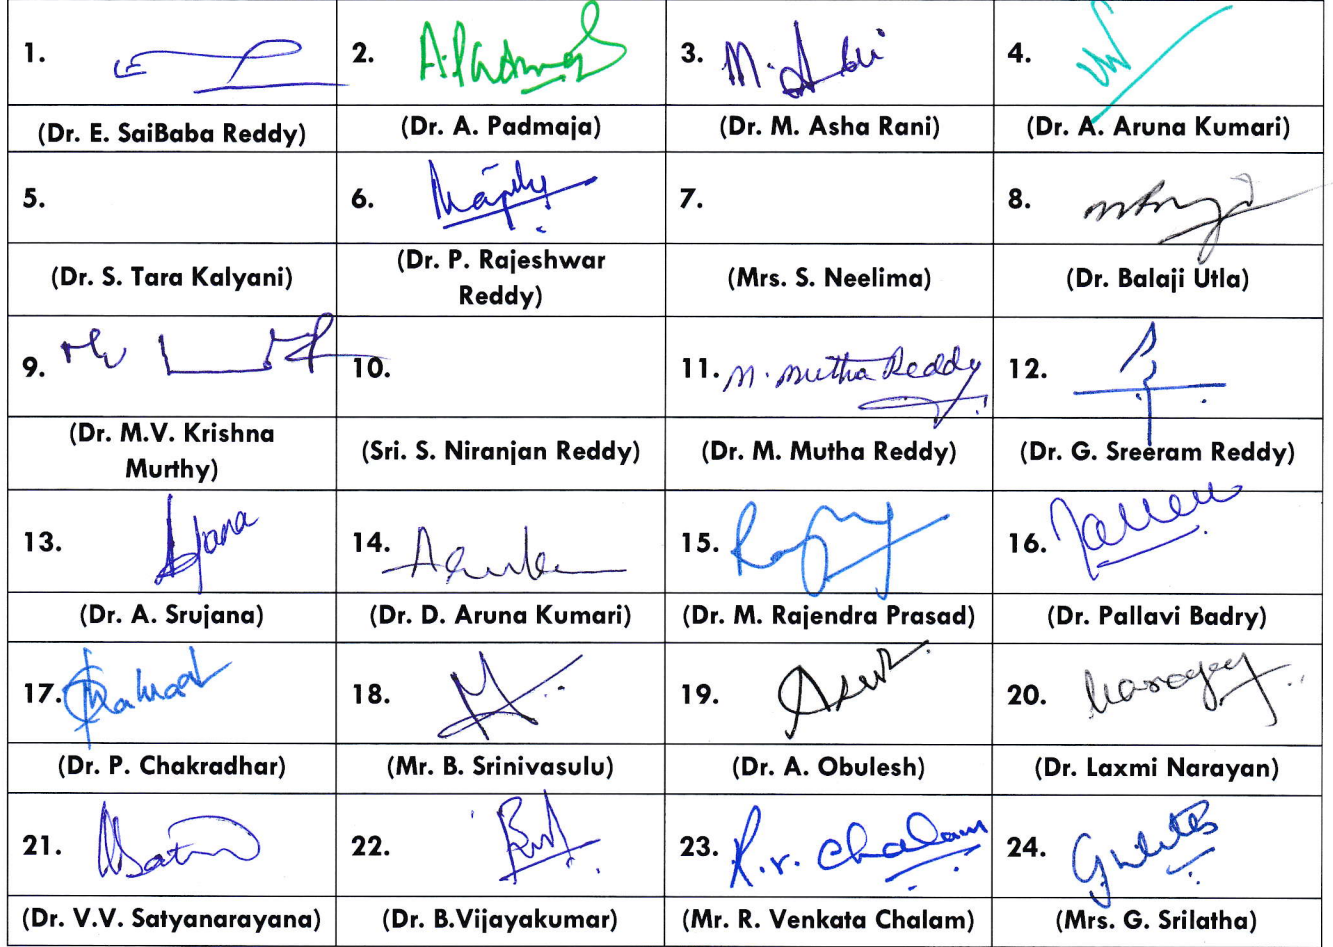 1. 2. A.Padmaja 3. M. 4.
(Dr. E. SaiBaba Reddy) (Dr. A. Padmaja) (Dr. M. Asha Rani) (Dr. A. Aruna Kumari)
5. 6. 7. 8.
(Dr. S. Tara Kalyani) (Dr. P. Rajeshwar (Mrs. S. Neelima) (Dr. Balaji Utla)
Reddy)
9. 10. 11. M. Mutha Reddy 12.
(Dr. M.V. Krishna (Sri. S. Niranjan Reddy) (Dr. M. Mutha Reddy) (Dr. G. Sreeram Reddy)
Murthy)
13. 14. 15. 16.
(Dr. A. Srujana) (Dr. D. Aruna Kumari) (Dr. M. Rajendra Prasad) (Dr. Pallavi Badry)
17. 18. 19. 20.
(Dr. P. Chakradhar) (Mr. B. Srinivasulu) (Dr. A. Obulesh) (Dr. Laxmi Narayan)
21. 22. 23. R.V. Chalam 24.
(Dr. V.V. Satyanarayana) (Dr. B.Vijayakumar) (Mr. R. Venkata Chalam) (Mrs. G. Srilatha)